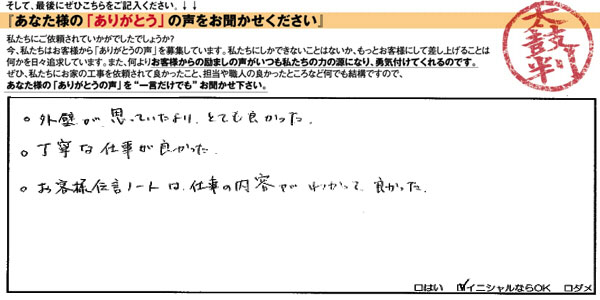 そして、最後にぜひこちらをご記入ください。↓↓
『あなた様の「ありがとう」の声をお聞かせください』
私たちにご依頼されていかがでしたでしょうか?
今、私たちはお客様から「ありがとうの声」を募集しています。私たちにしかできないことはないか、もっとお客様にして差し上げることは
何かを日々追求しています。また、何よりお客様からの励ましの声がいつも私たちの力の源になり、勇気付けてくれるのです。
ぜひ、私たちにお家の工事を依頼されて良かったこと、担当や職人の良かったところなど何でも結構ですので、
あなた様の「ありがとうの声」を“一言だけでも”お聞かせ下さい。
太鼓判
○ 外壁が、思っていたより、とても良かった。
○ 丁寧な仕事が良かった
○ お客様伝言ノートは、仕事の内容がわかって良かった。
□はい ☑イニシャルならOK □ダメ